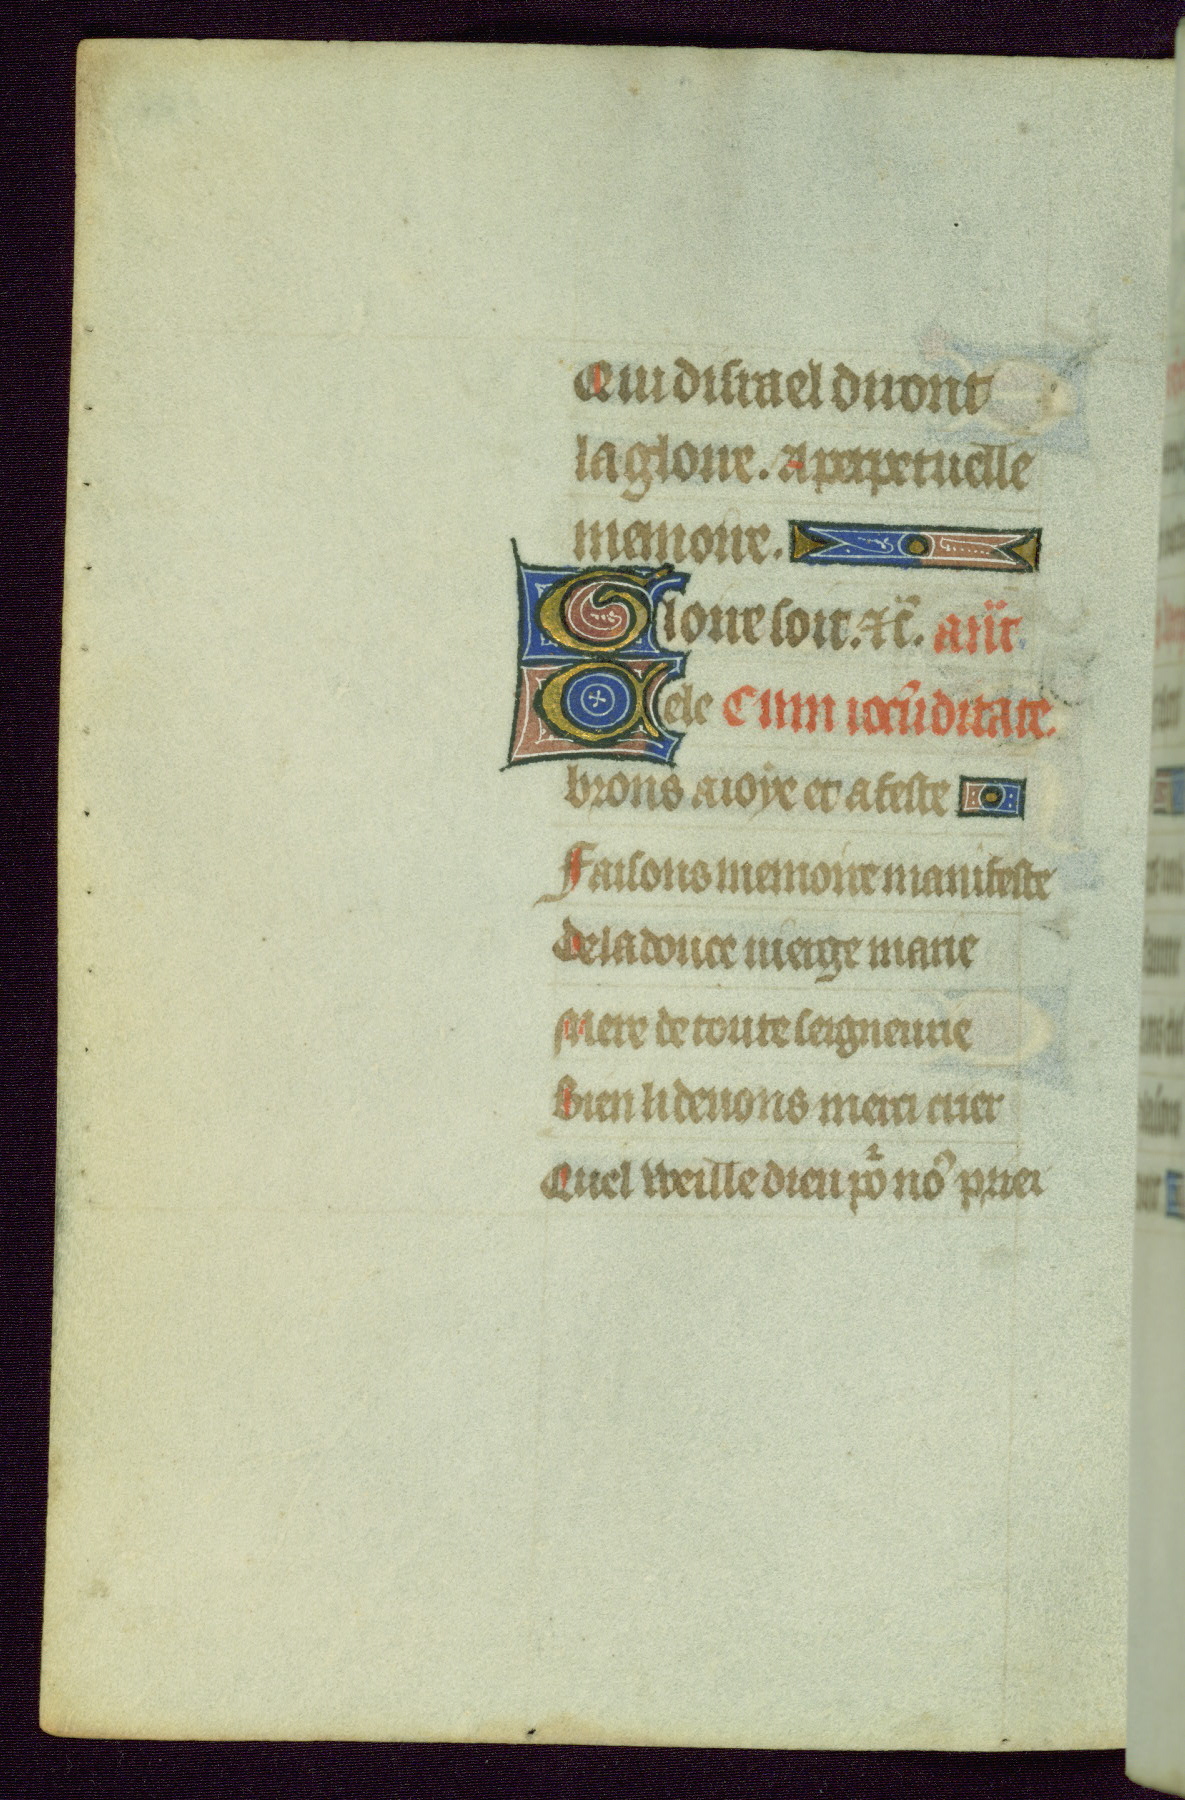 Qui disrael diront
la gloire. A perpetuelle
memoire.
Gloire soit. ⁊c̄. ant̄.
Cele Cum iocūditate.
brons a ioye et a feste
Faisons memoire manifeste
De la douce uierge marie
Mere de toute seigneurie
Bien li deuons merci crier
Quel weille dieu po᷑ noꝰ prier